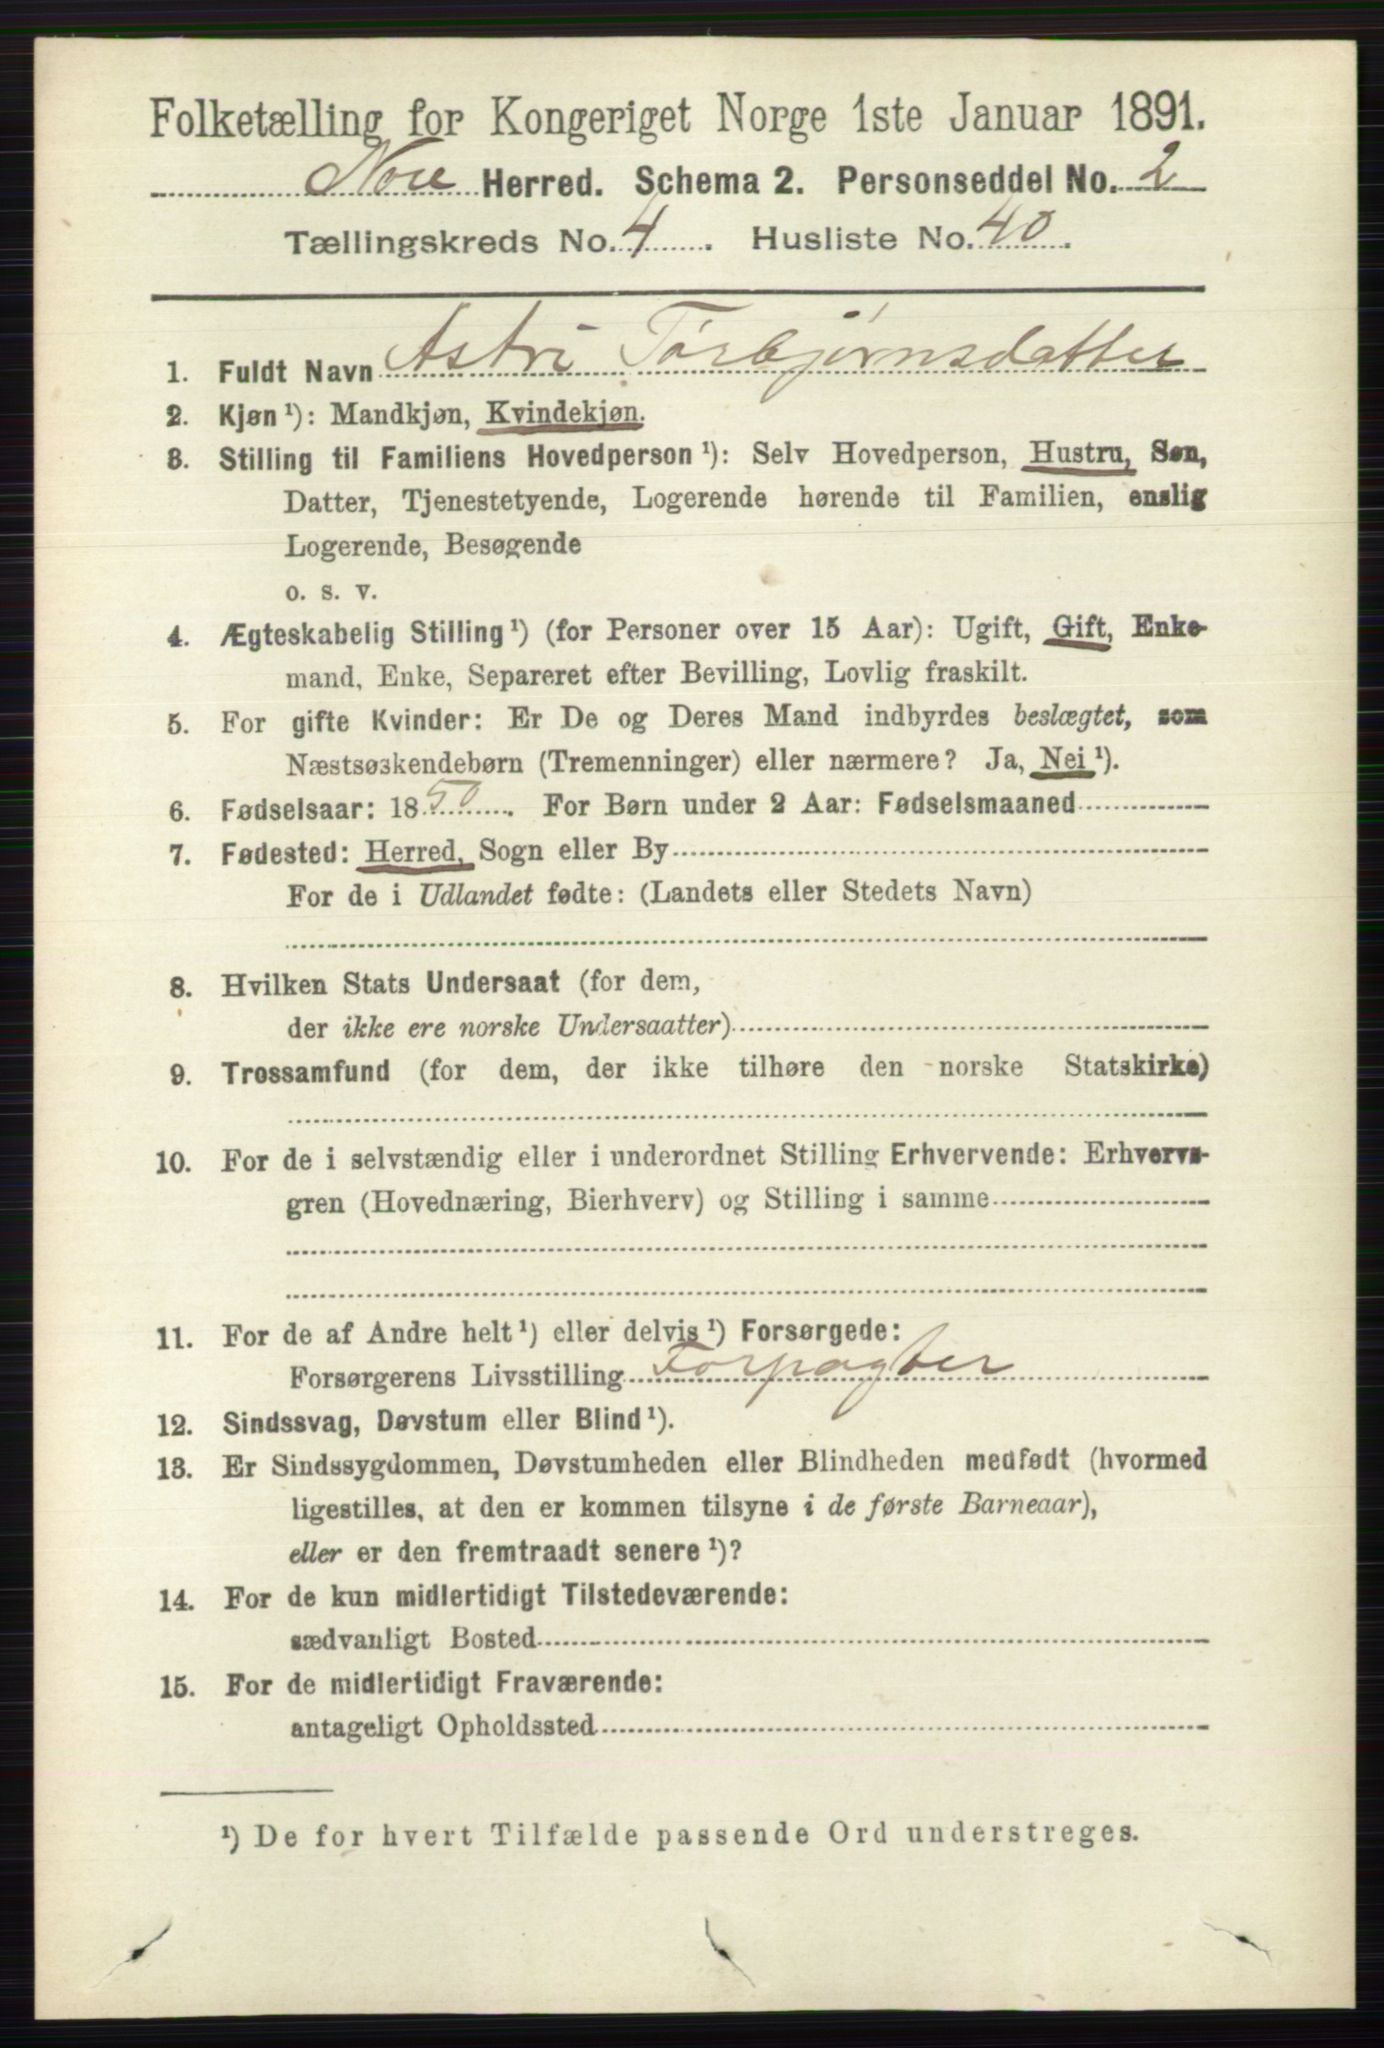 Folketælling for Kongeriget Norge 1ste Januar 1891.
Nore Herred. Schema 2. Personseddel No. 2
Tællingskreds No. 4. Husliste No. 40.
1. Fuldt Navn Astri Torbjørnsdatter
2. Kjøn ¹): Mandkjøn, Kvindekjøn.
3. Stilling til Familiens Hovedperson ¹): Selv Hovedperson, Hustru, Søn,
Datter, Tjenestetyende, Logerende hørende til Familien, enslig
Logerende, Besøgende
o. s. v.
4. Ægteskabelig Stilling ¹) (for Personer over 15 Aar): Ugift, Gift, Enke-
mand, Enke, Separeret efter Bevilling, Lovlig fraskilt.
5. For gifte Kvinder: Er De og Deres Mand indbyrdes beslægtet, som
Næstsøskendebørn (Tremenninger) eller nærmere? Ja, Nei ¹).
6. Fødselsaar: 1850. For Børn under 2 Aar: Fødselsmaaned
7. Fødested: Herred, Sogn eller By
For de i Udlandet fødte: (Landets eller Stedets Navn)
8. Hvilken Stats Undersaat (for dem,
der ikke ere norske Undersaatter)
9. Trossamfund (for dem, der ikke tilhøre den norske Statskirke)
10. For de i selvstændig eller i underordnet Stilling Erhvervende: Erhvervs-
gren (Hovednæring, Bierhverv) og Stilling i samme
11. For de af Andre helt ¹) eller delvis ¹) Forsørgede:
Forsørgerens Livsstilling Forpagter
12. Sindssvag, Døvstum eller Blind ¹).
13. Er Sindssygdommen, Døvstumheden eller Blindheden medfødt (hvormed
ligestilles, at den er kommen tilsyne i de første Barneaar),
eller er den fremtraadt senere ¹)?
14. For de kun midlertidigt Tilstedeværende:
sædvanligt Bosted
15. For de midlertidigt Fraværende:
antageligt Opholdssted
¹) De for hvert Tilfælde passende Ord understreges.